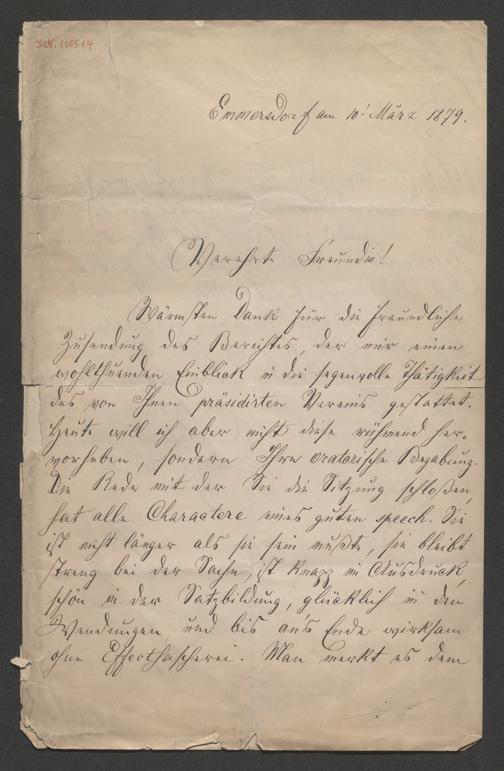 J.N. 100514
Emmersdorf am 10t März 1879.
Verehrte Freundin!
Wärmsten Dank für die freundliche
Zusendung des Berichtes, der mir einen
wohlthuenden Einblick in die segenvolle Thätigkeit
des von Ihnen präsidirten Vereins gestattet.
Heute will ich aber nicht diese rühmend her-
vorheben, sondern Ihre oratorische Begabung.
Die Rede mit der Sie die Sitzung schloßen,
hat alle Charactere eines guten speech. Sie
ist nicht länger als sie sein mußte, sie bleibt
streng bei der Sache, ist knapp im Ausdruck,
schön in der Satzbildung, glücklich in den
Wendungen, und bis an's Ende wirksam
ohne Effecthascherei. Man merkt es dem